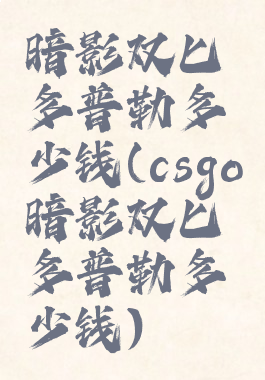 暗影双匕
多普勒多
少钱(csgo
暗影双匕
多普勒多
少钱)